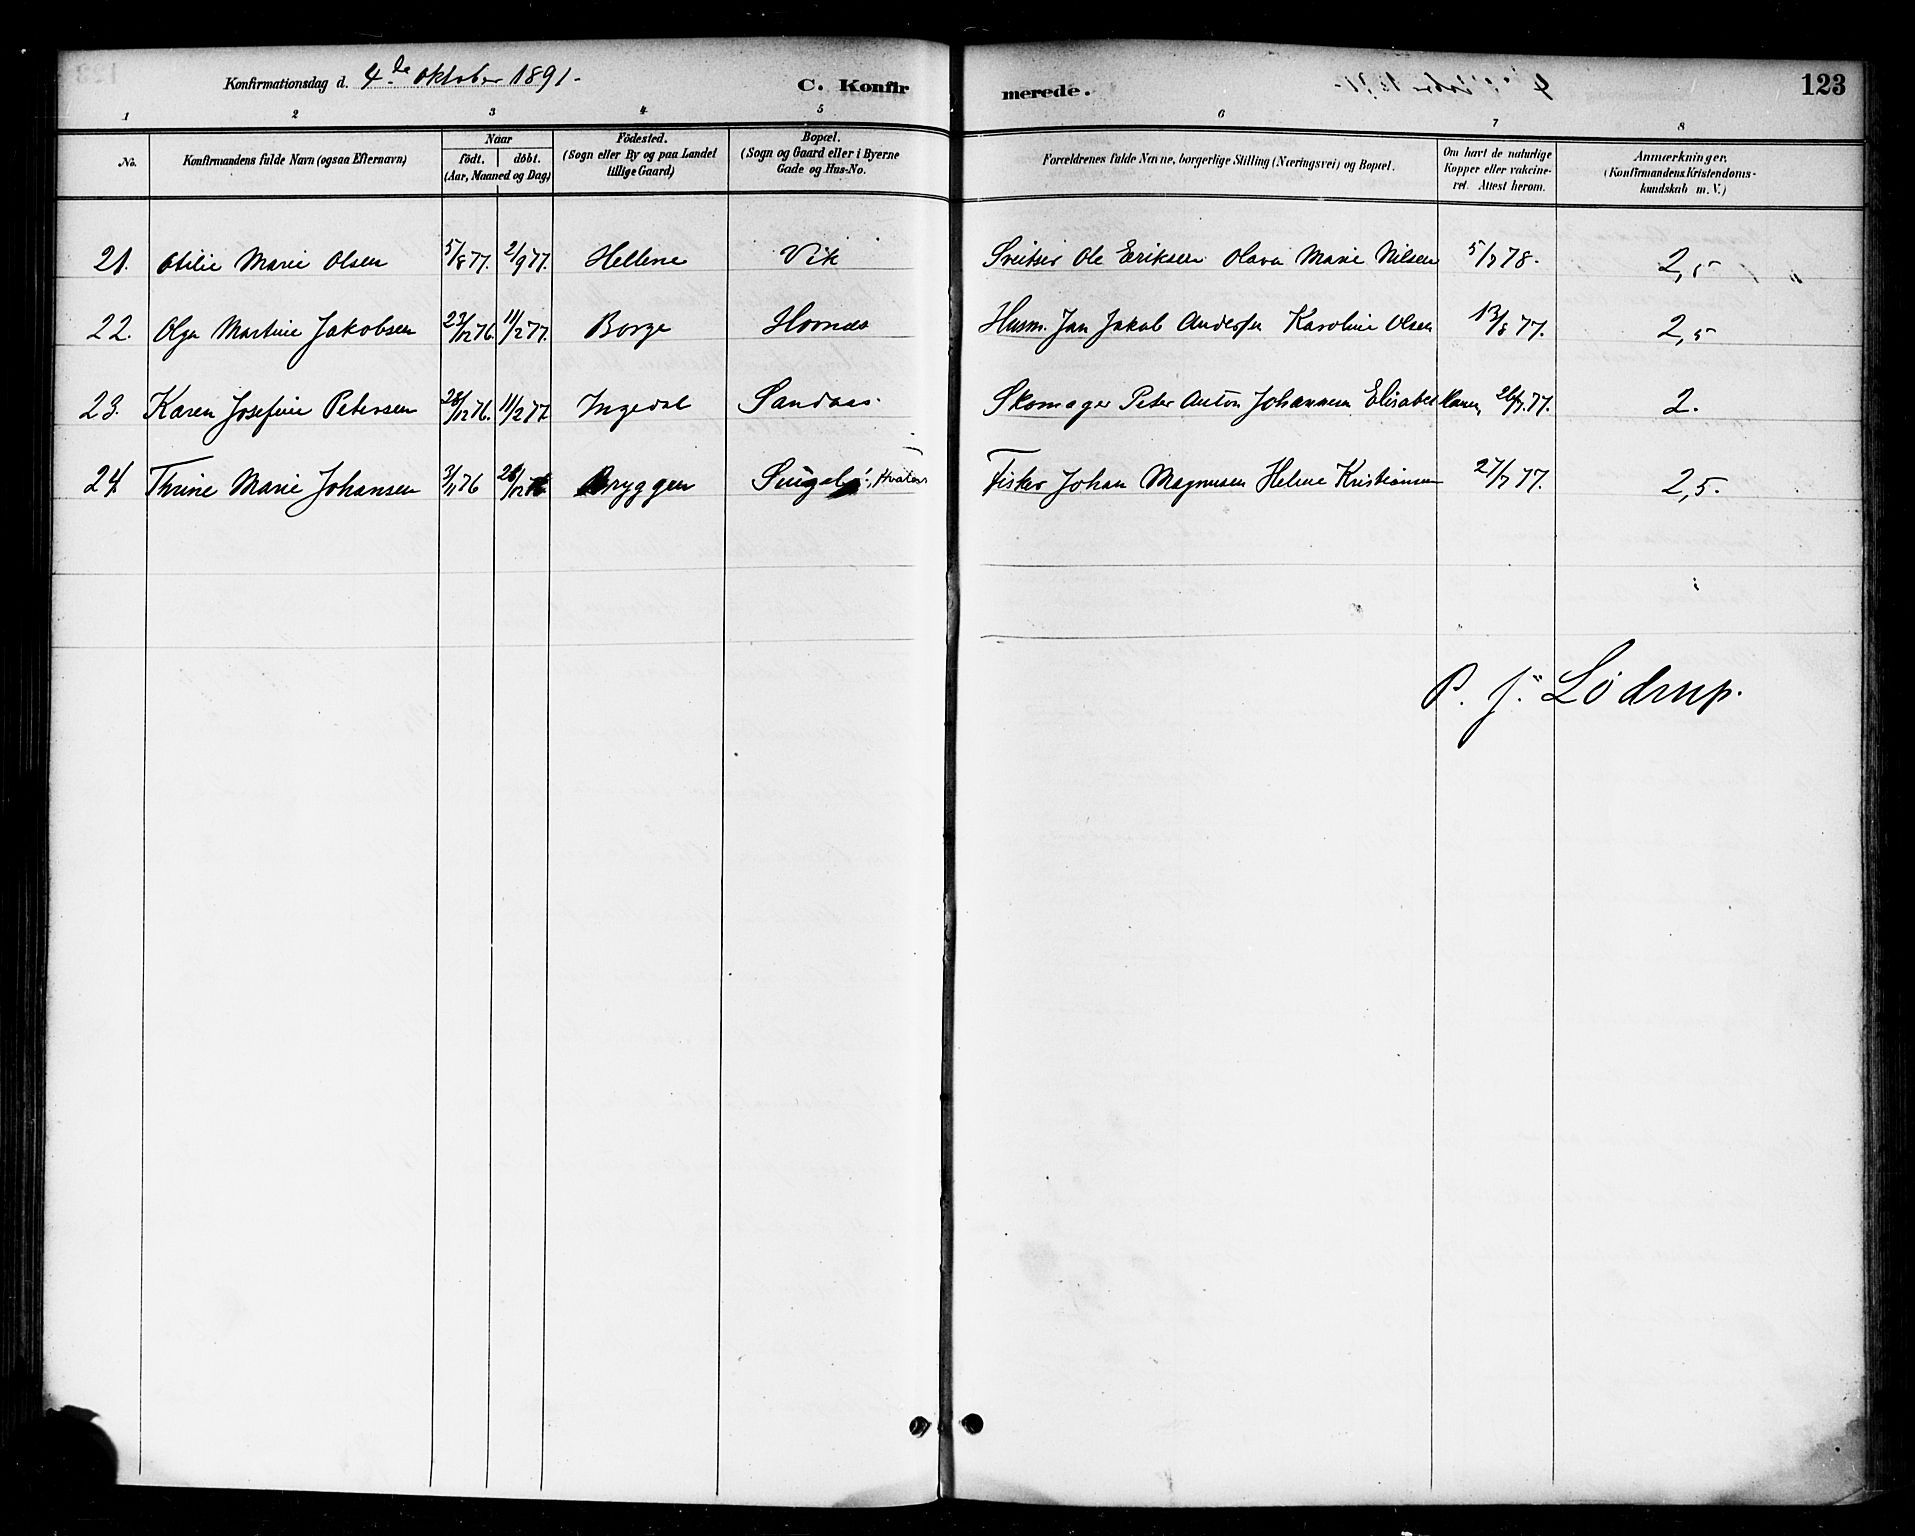 Konfirmationsdag d. 4de oktober 1891.
C. Konfirmerede.
123
1 2 3 4 5 6 7 8
No.
Konfirmandens fulde Navn (ogsaa Efternavn)
Naar
födt. | döbt.
(Aar, Maaned og Dag)
Födested.
(Sogn eller By og paa Landet
tillige Gaard)
Bopæl.
(Sogn og Gaard eller i Byerne
Gade og Hus-No.
Forældrenes fulde Navne, borgerlige Stilling (Næringsvei) og Bopæl.
Om havt de naturlige
Kopper eller vakcine-
ret. Attest herom.
Anmærkninger,
(Konfirmandens Kristendoms-
kundskab m. V.)
21. Otilie Marie Olsen 5/8 77. 2/9 77. Hellene Vik Sveitser Ole Eriksen Olava Marie Nilsen 5/7 78. 2,5
22. Olga Martine Jakobsen 23/12 76. 11/2 77. Borge Hornæs Husm. Jan Jakob Andersen Karoline Olsen 13/8 77. 2,5
23. Karen Josefine Petersen 28/12 76. 11/2 77. Ingedal Sandaas. Skomager Peter Anton Johannesen Elisabet 26/7. 77. 2.
24 Thrine Marie Johansen 3/11 76 26/12 76 Bryggen Hvaler Fisker Johan Magnusen Helene Kristiansen 27/7 77. 2,5.
P. J. Lödrup.